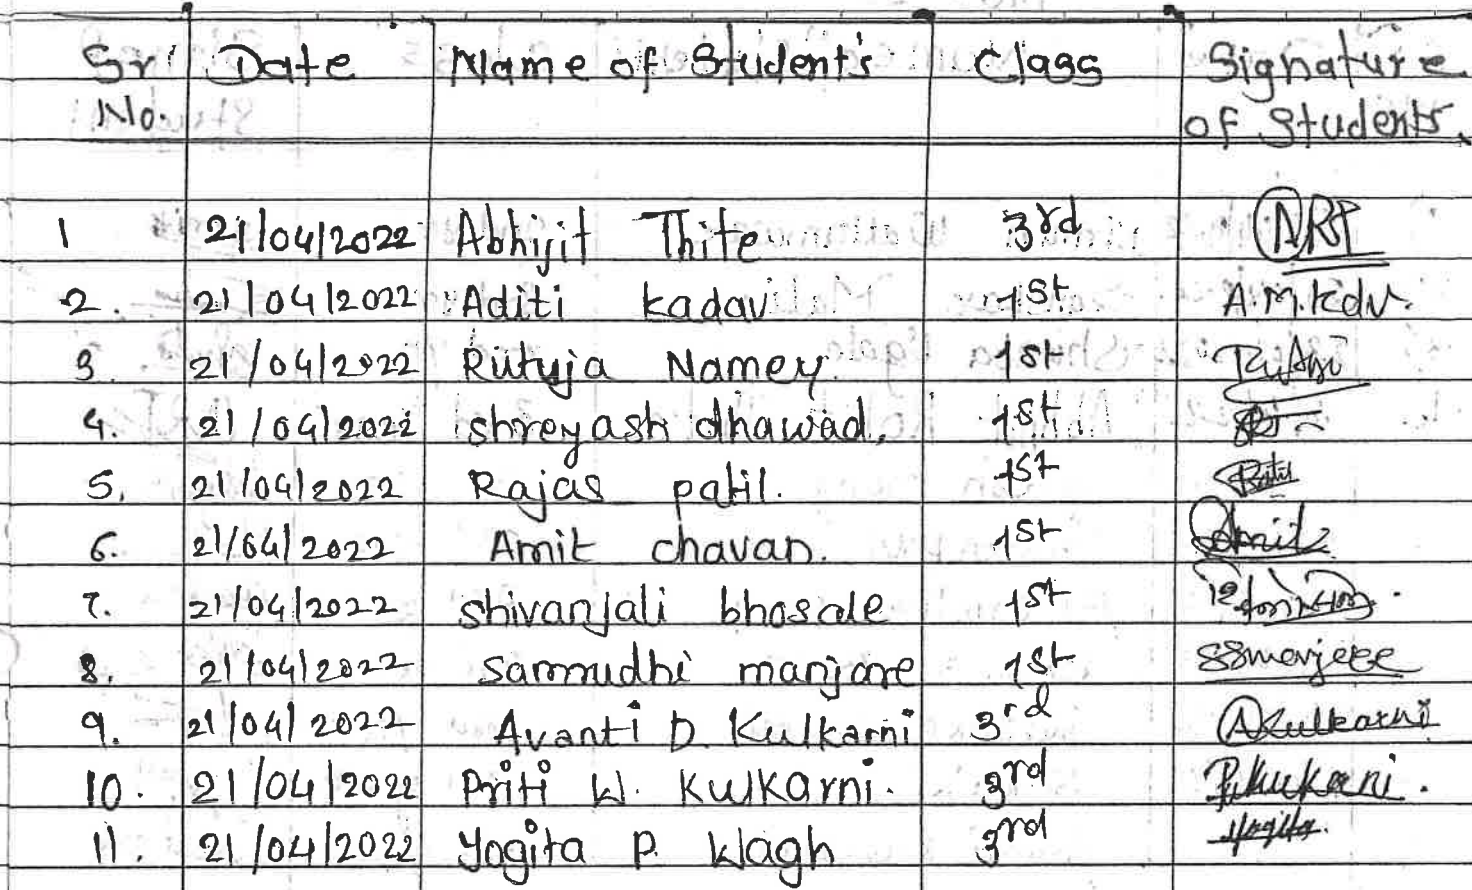 Sr Date Name of Student's Class Signature
No. of Students.
1 21/04/2022 Abhijit Thite 3rd
2. 21/04/2022 Aditi kadav 1st A.M.Kdv.
3. 21/04/2022 Rutuja Namey 1st
4. 21/04/2022 shreyash dhawad, 1st
5. 21/04/2022 Rajas patil. 1st
6. 21/04/2022 Amit chavan. 1st Amit
7. 21/04/2022 shivanjali bhosale 1st
8. 21/04/2022 sammudhi manjare 1st
9. 21/04/2022 Avanti D. Kulkarni 3rd AKulkarni
10. 21/04/2022 Priti W. Kulkarni. 3rd
11. 21/04/2022 Yogita P. Wagh 3rd Yogita.